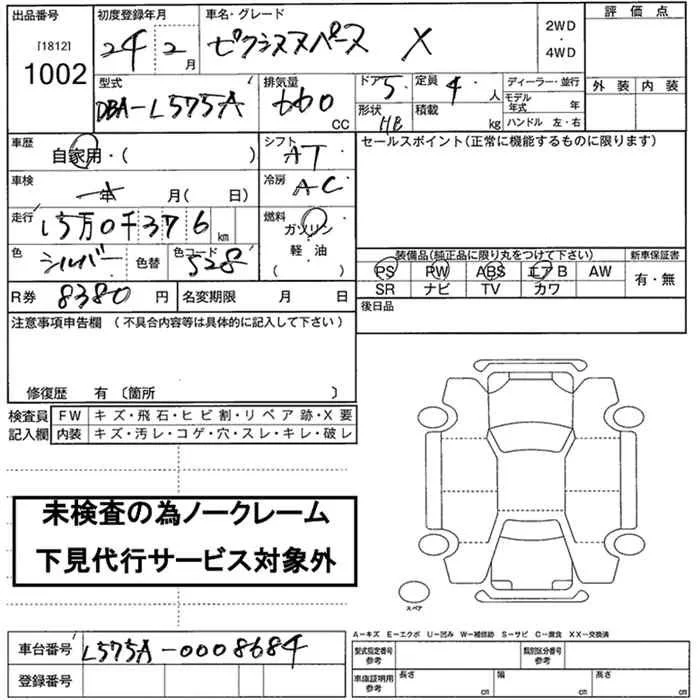 出品番号 初度登録年月 車名・グレード 2WD・4WD 評価点
[1812]
1002 24 2月 ゼクシスヌペース X
外装 内装
型式 排気量 ドア 定員 ディーラー・並行
DBA-L575A 660 CC 5 4人 モデル年式 年
形状 HB 積載 kg ハンドル 左・右
車歴 シフト セールスポイント(正常に機能するものに限ります)
自家用・( ) AT
車検 年 月( 日) 冷房 AC
走行 15万0千376km 燃料 ガソリン
軽油
( )
色 シルバー 色替 色コード S28
装備品(純正品に限り丸をつけて下さい) 新車保証書
PS PW ABS エアB AW 有・無
SR ナビ TV カワ
R券 8380円 名変期限 月 日 後日品
注意事項申告欄(不具合内容等は具体的に記入して下さい)
修復歴 有〔箇所 〕
検査員 FW キズ・飛石・ヒビ割・リペア跡・X要
記入欄 内装 キズ・汚レ・コゲ・穴・スレ・キレ・破レ
未検査の為ノークレーム
下見代行サービス対象外
スペア
A-キズ E-エクボ U-凹み W-補修跡 S-サビ C-腐食 XX-交換済
車台番号 L575A-0008684 型式指定番号 参考 類別区分番号 参考
登録番号 車庫証明用 参考 長さ cm 幅 cm 高さ cm